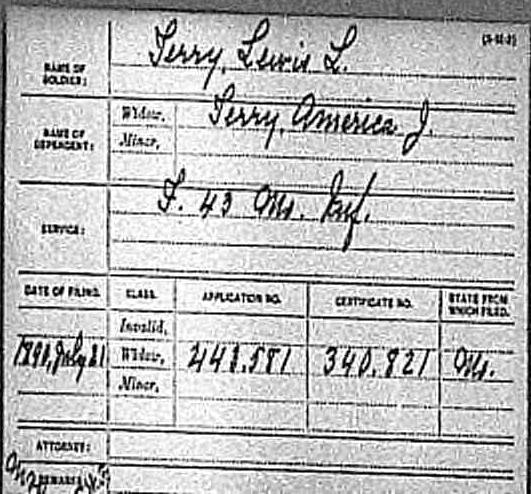 (3-M-2)
NAME OF SOLDIER: Terry, Lewis L.
NAME OF DEPENDENT: Widow, Terry, America J.
Minor,
SERVICE: F. 43 Mo. Inf.
DATE OF FILING. CLASS. APPLICATION NO. CERTIFICATE NO. STATE FROM WHICH FILED.
Invalid,
1890, July 21 Widow, 448.581 340.821 Mo.
Minor,
ATTORNEY:
REMARKS: